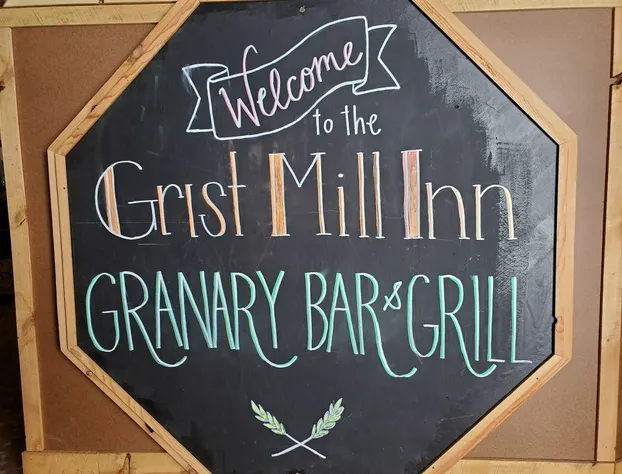 Welcome
to the
Grist Mill Inn
GRANARY BAR & GRILL